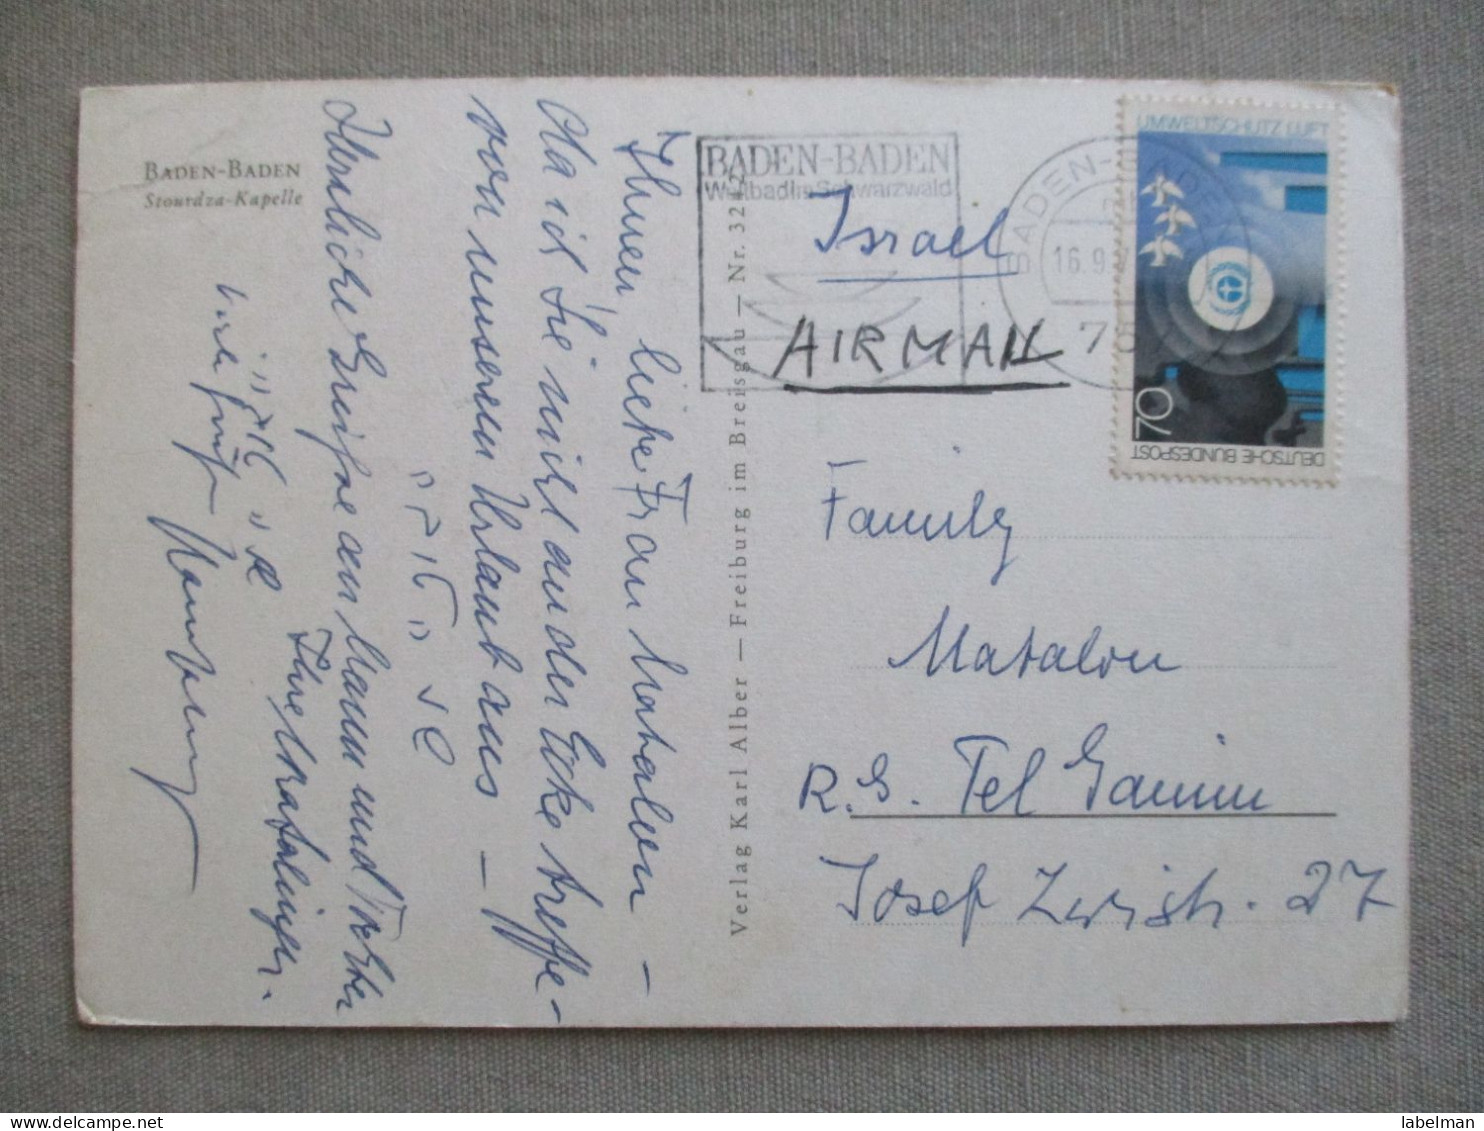 BADEN-BADEN
Stourdza-Kapelle
Ihnen, liebe Frau Matalon –
da ich Sie nicht an der Ecke treffe –
von unserem Urlaub aus –
Herzliche Grüße an Mann und Tochter
Ihre
Verlag Karl Alber — Freiburg im Breisgau — Nr. 32
BADEN-BADEN
Weltbad im Schwarzwald
BADEN-BADEN
16.9.
UMWELTSCHUTZ LUFT
70
DEUTSCHE BUNDESPOST
Israel
AIRMAIL
Family
Matalon
R.G. Tel Ganim
Josef Zwistr. 27
labelman
delcampe.net